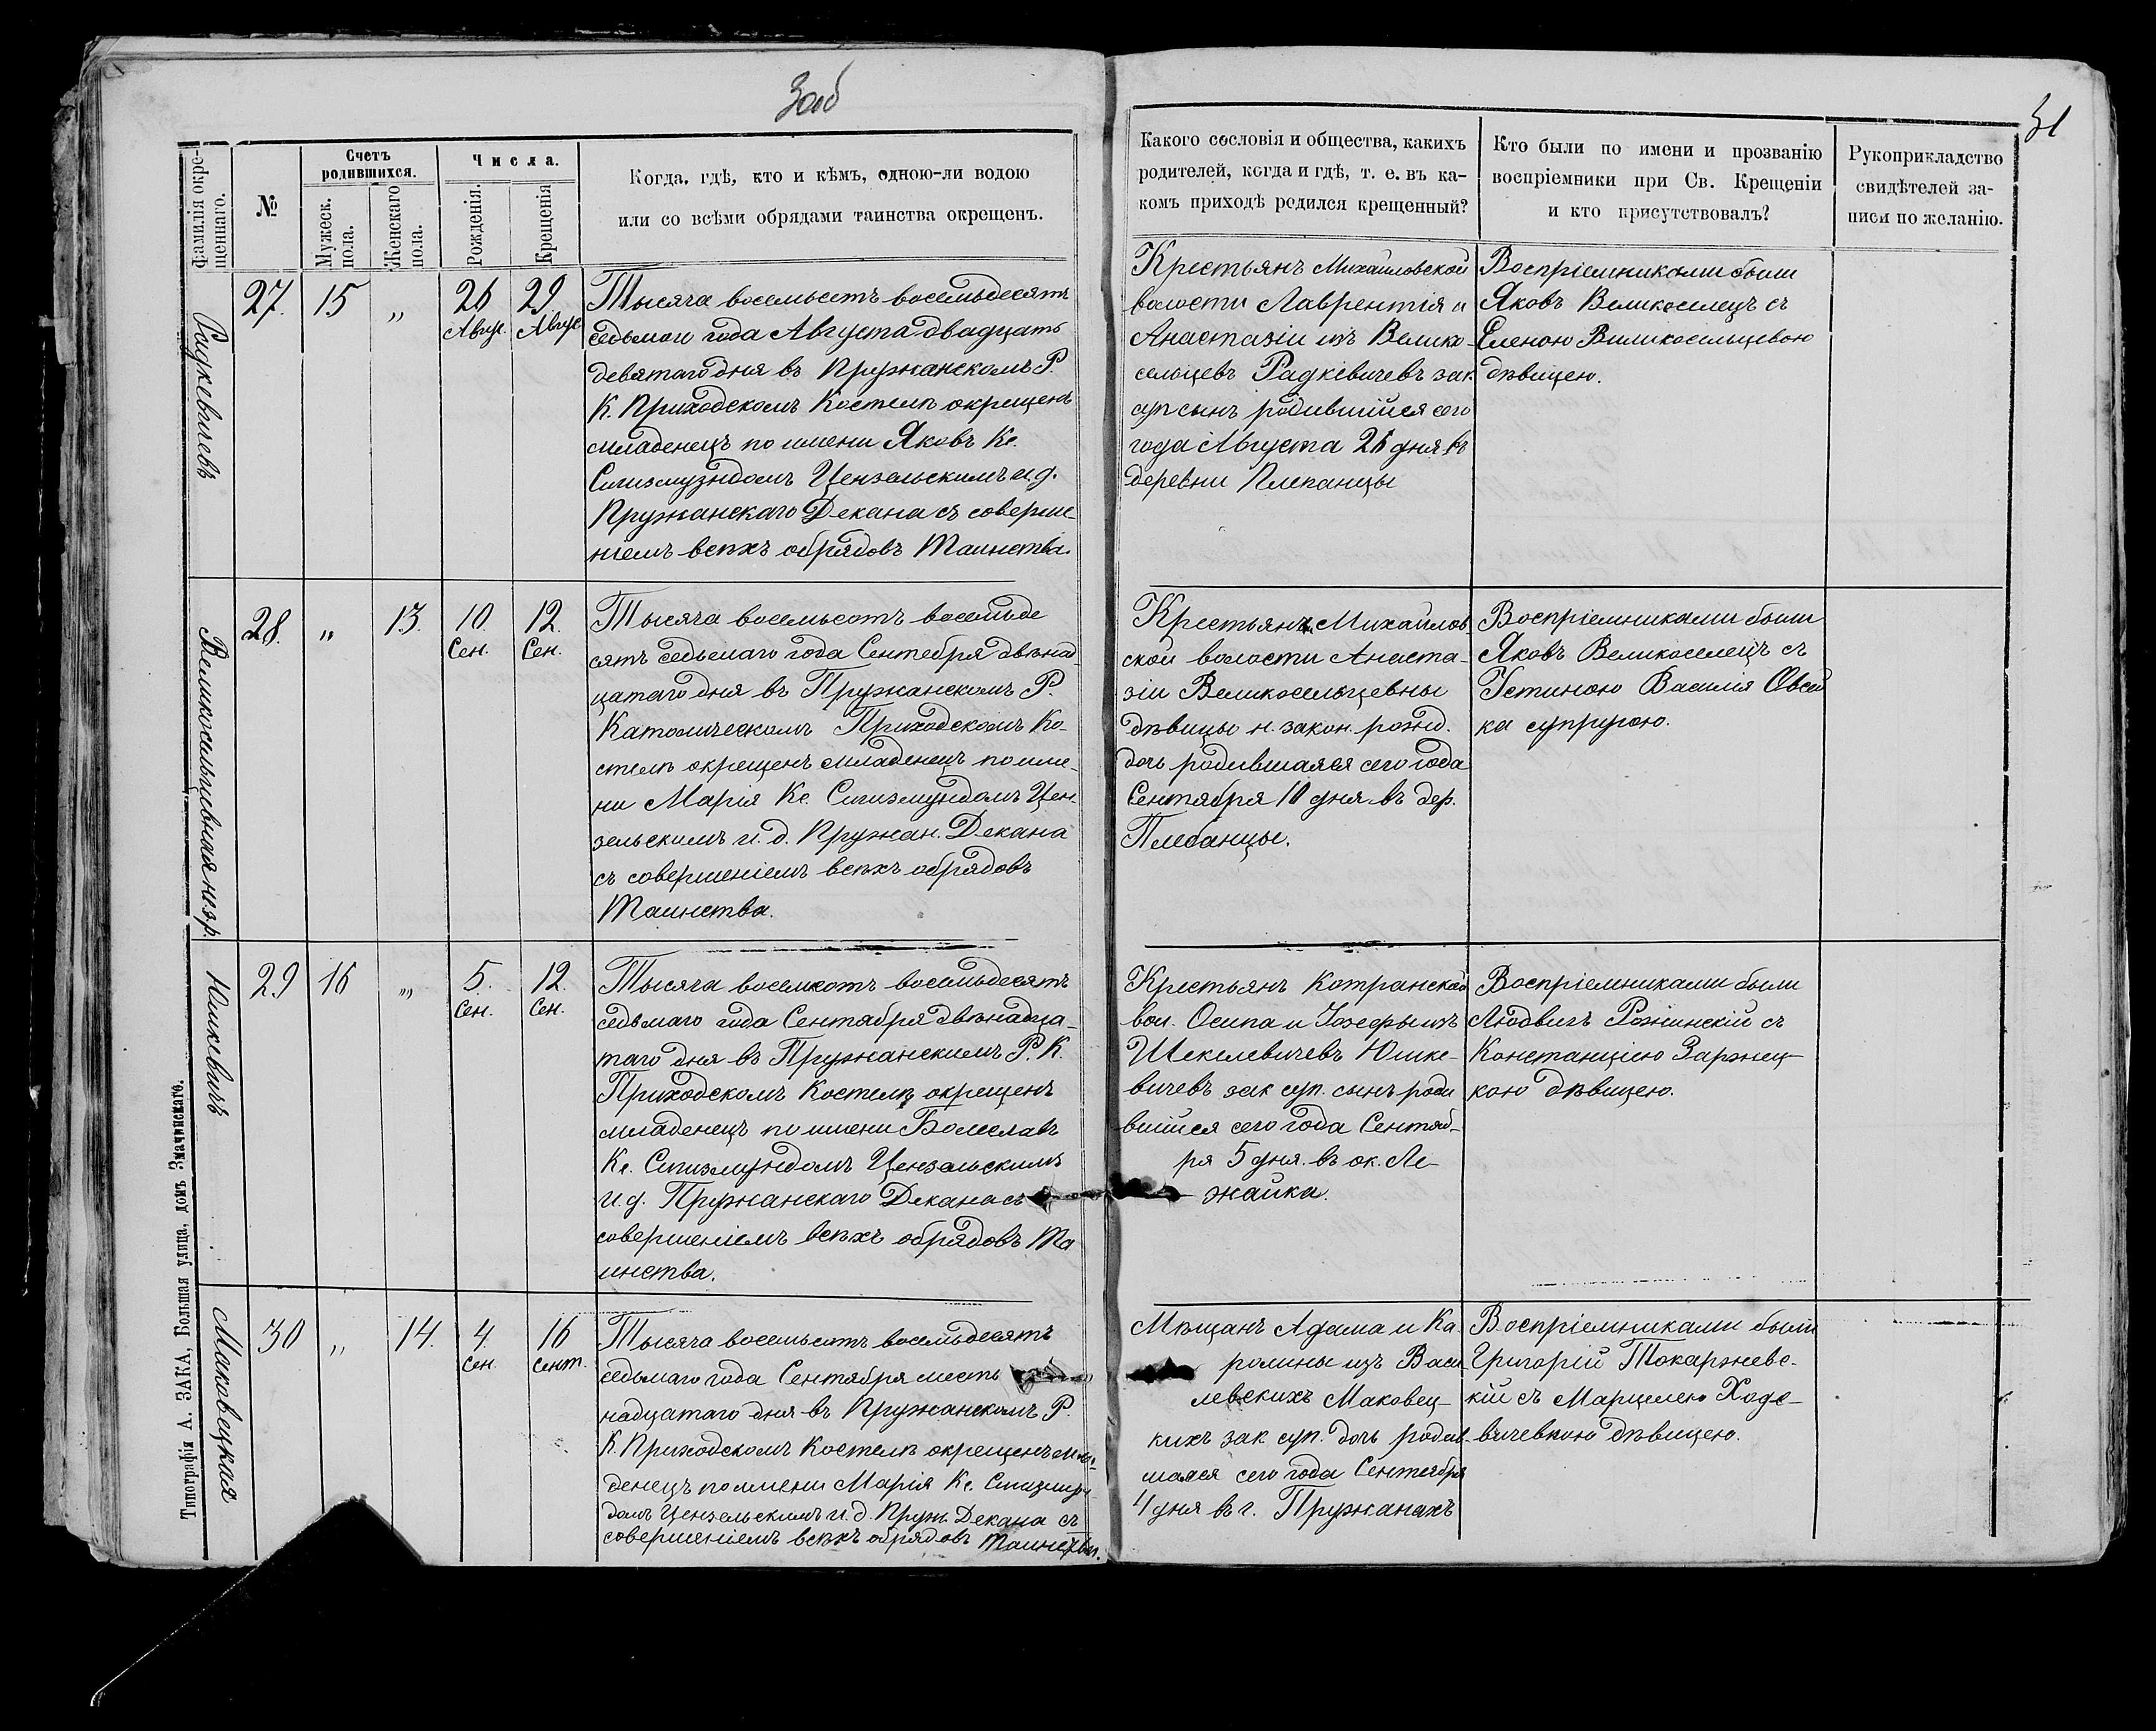 30об
31
Фамилія окре-
щеннаго.
№
Счетъ
родившихся.
Мужеск.
пола.
Женскаго
пола.
Числа.
Рожденія.
Крещенія
Когда, гдѣ, кто и кѣмъ, одною-ли водою
или со всѣми обрядами таинства окрещенъ.
Какого сословія и общества, какихъ
родителей, когда и гдѣ, т. е. въ ка-
комъ приходѣ родился крещенный?
Кто были по имени и прозванію
воспріемники при Св. Крещеніи
и кто присутствовалъ?
Рукоприкладство
свидѣтелей за-
писи по желанію.
Радкевичевъ
27. 15 „ 26 29
Авгус. Авгус.
Тысяча восемьсотъ восемьдесятъ
седьмого года Августа двадцать
девятаго дня въ Пружанскомъ Р.
К. Приходскомъ Костелѣ окрещенъ
младенецъ по имени Яковъ Кс.
Сигизмундомъ Цензельскимъ и.д.
Пружанскаго Декана съ соверше-
ніемъ всѣхъ обрядовъ Таинства.
Крестьянъ Михайловской
волости Лаврентія и
Анастазіи изъ Велико-
сельцевъ Радкевичевъ зак.
суп сынъ родившійся сего
года Августа 26 дня въ
деревни Плепанцы
Воспріемниками были
Яковъ Великоселецъ съ
Еленою Виликосельцевою
дѣвицею.
Великосельцевная нз.р.
28. „ 13. 10. 12.
Сен. Сен.
Тысяча восемьсотъ восемьде
сятъ седьмаго года Сентебря двѣнад
цатаго дня въ Пружанскомъ Р.
Католическомъ Приходскомъ Ко-
стелѣ окрещенъ младенецъ по име-
ни Марія Кс. Сигизмундомъ Цен-
зельскимъ и. д. Пружан. Декана
съ совершеніемъ всѣхъ обрядовъ
Таинства.
Крестьянъ Михайлов-
ской волости Анаста-
зіи Великосельцевны
дѣвицы н. закон. рожд.
дочь родившаяся сего года
Сентября 10 дня въ дер.
Плебанцы.
Воспріемниками были
Яковъ Великоселецъ съ
Устиною Василія Овсей
ка супругою.
Юшкевичъ
29 16 „ 5. 12.
Сен. Сен.
Тысяча восемсотъ восемьдесятъ
седьмаго года Сентября двѣнадца-
таго дня въ Пружанскимъ Р. К.
Приходскомъ Костелѣ окрещенъ
младенецъ по имени Болеславъ
Кс. Сигизмундомъ Цензельскимъ
и.д. Пружанскаго Декана съ
совершеніемъ всѣхъ обрядовъ Та
инства.
Крестьянъ Котранской
вол. Осипа и Іозефы изъ
Шекелевичевъ Юшке-
вичевъ зак суп. сынъ роди
вшійся сего года Сентяб-
ря 5 дня въ ок. Ле-
жайка.
Воспріемниками были
Людвигъ Рожинскій съ
Констанціею Заржец-
кою дѣвицею.
Маковецкая
30 „ 14. 4. 16
Сен. Сент.
Тысяча восемьсотъ восемьдесятъ
седьмаго года Сентября шесть
надцатаго дня въ Пружанскомъ Р.
К. Приходскомъ Костелѣ окрещенъ мла-
денецъ по имени Марія Кс. Сигизмун
домъ Цензельскимъ и.д. Пруж. Декана съ
совершеніемъ всѣхъ обрядовъ Таинства.
Мѣщанъ Адама и Ка
ролины изъ Васи
левскихъ Маковец-
кихъ зак. суп. дочь родив-
шаяся сего года Сентебря
4 дня въ г. Пружанахъ
Воспріемниками были
Григорій Токаржевс-
кій съ Марцелею Ходс-
вичевною дѣвицею.
Типографія А. ЗАКА, Большая улица, домъ Змачинскаго.